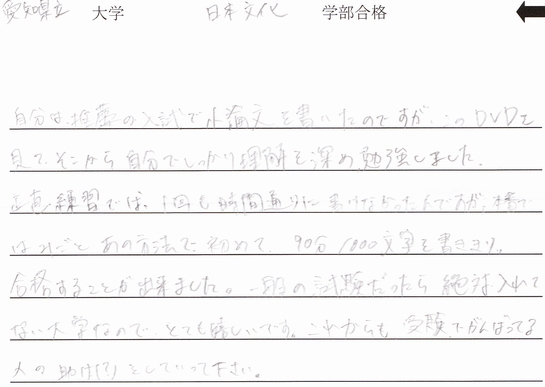 愛知県立 大学 日本文化 学部合格
自分は、推薦の入試で小論文を書いたのですが、このDVDを
見て、そこから自分でしっかり理解を深め勉強しました。
正直、練習では、1回も時間通りに書けなかったんですが、本番で
はみごと あの方法で、初めて、90分/1000文字を書ききり。
合格することが出来ました。一般の試験だったら絶対入れて
ない大学なので、とても嬉しいです。これからも受験でがんばってる
人の助け(?)をしていって下さい。